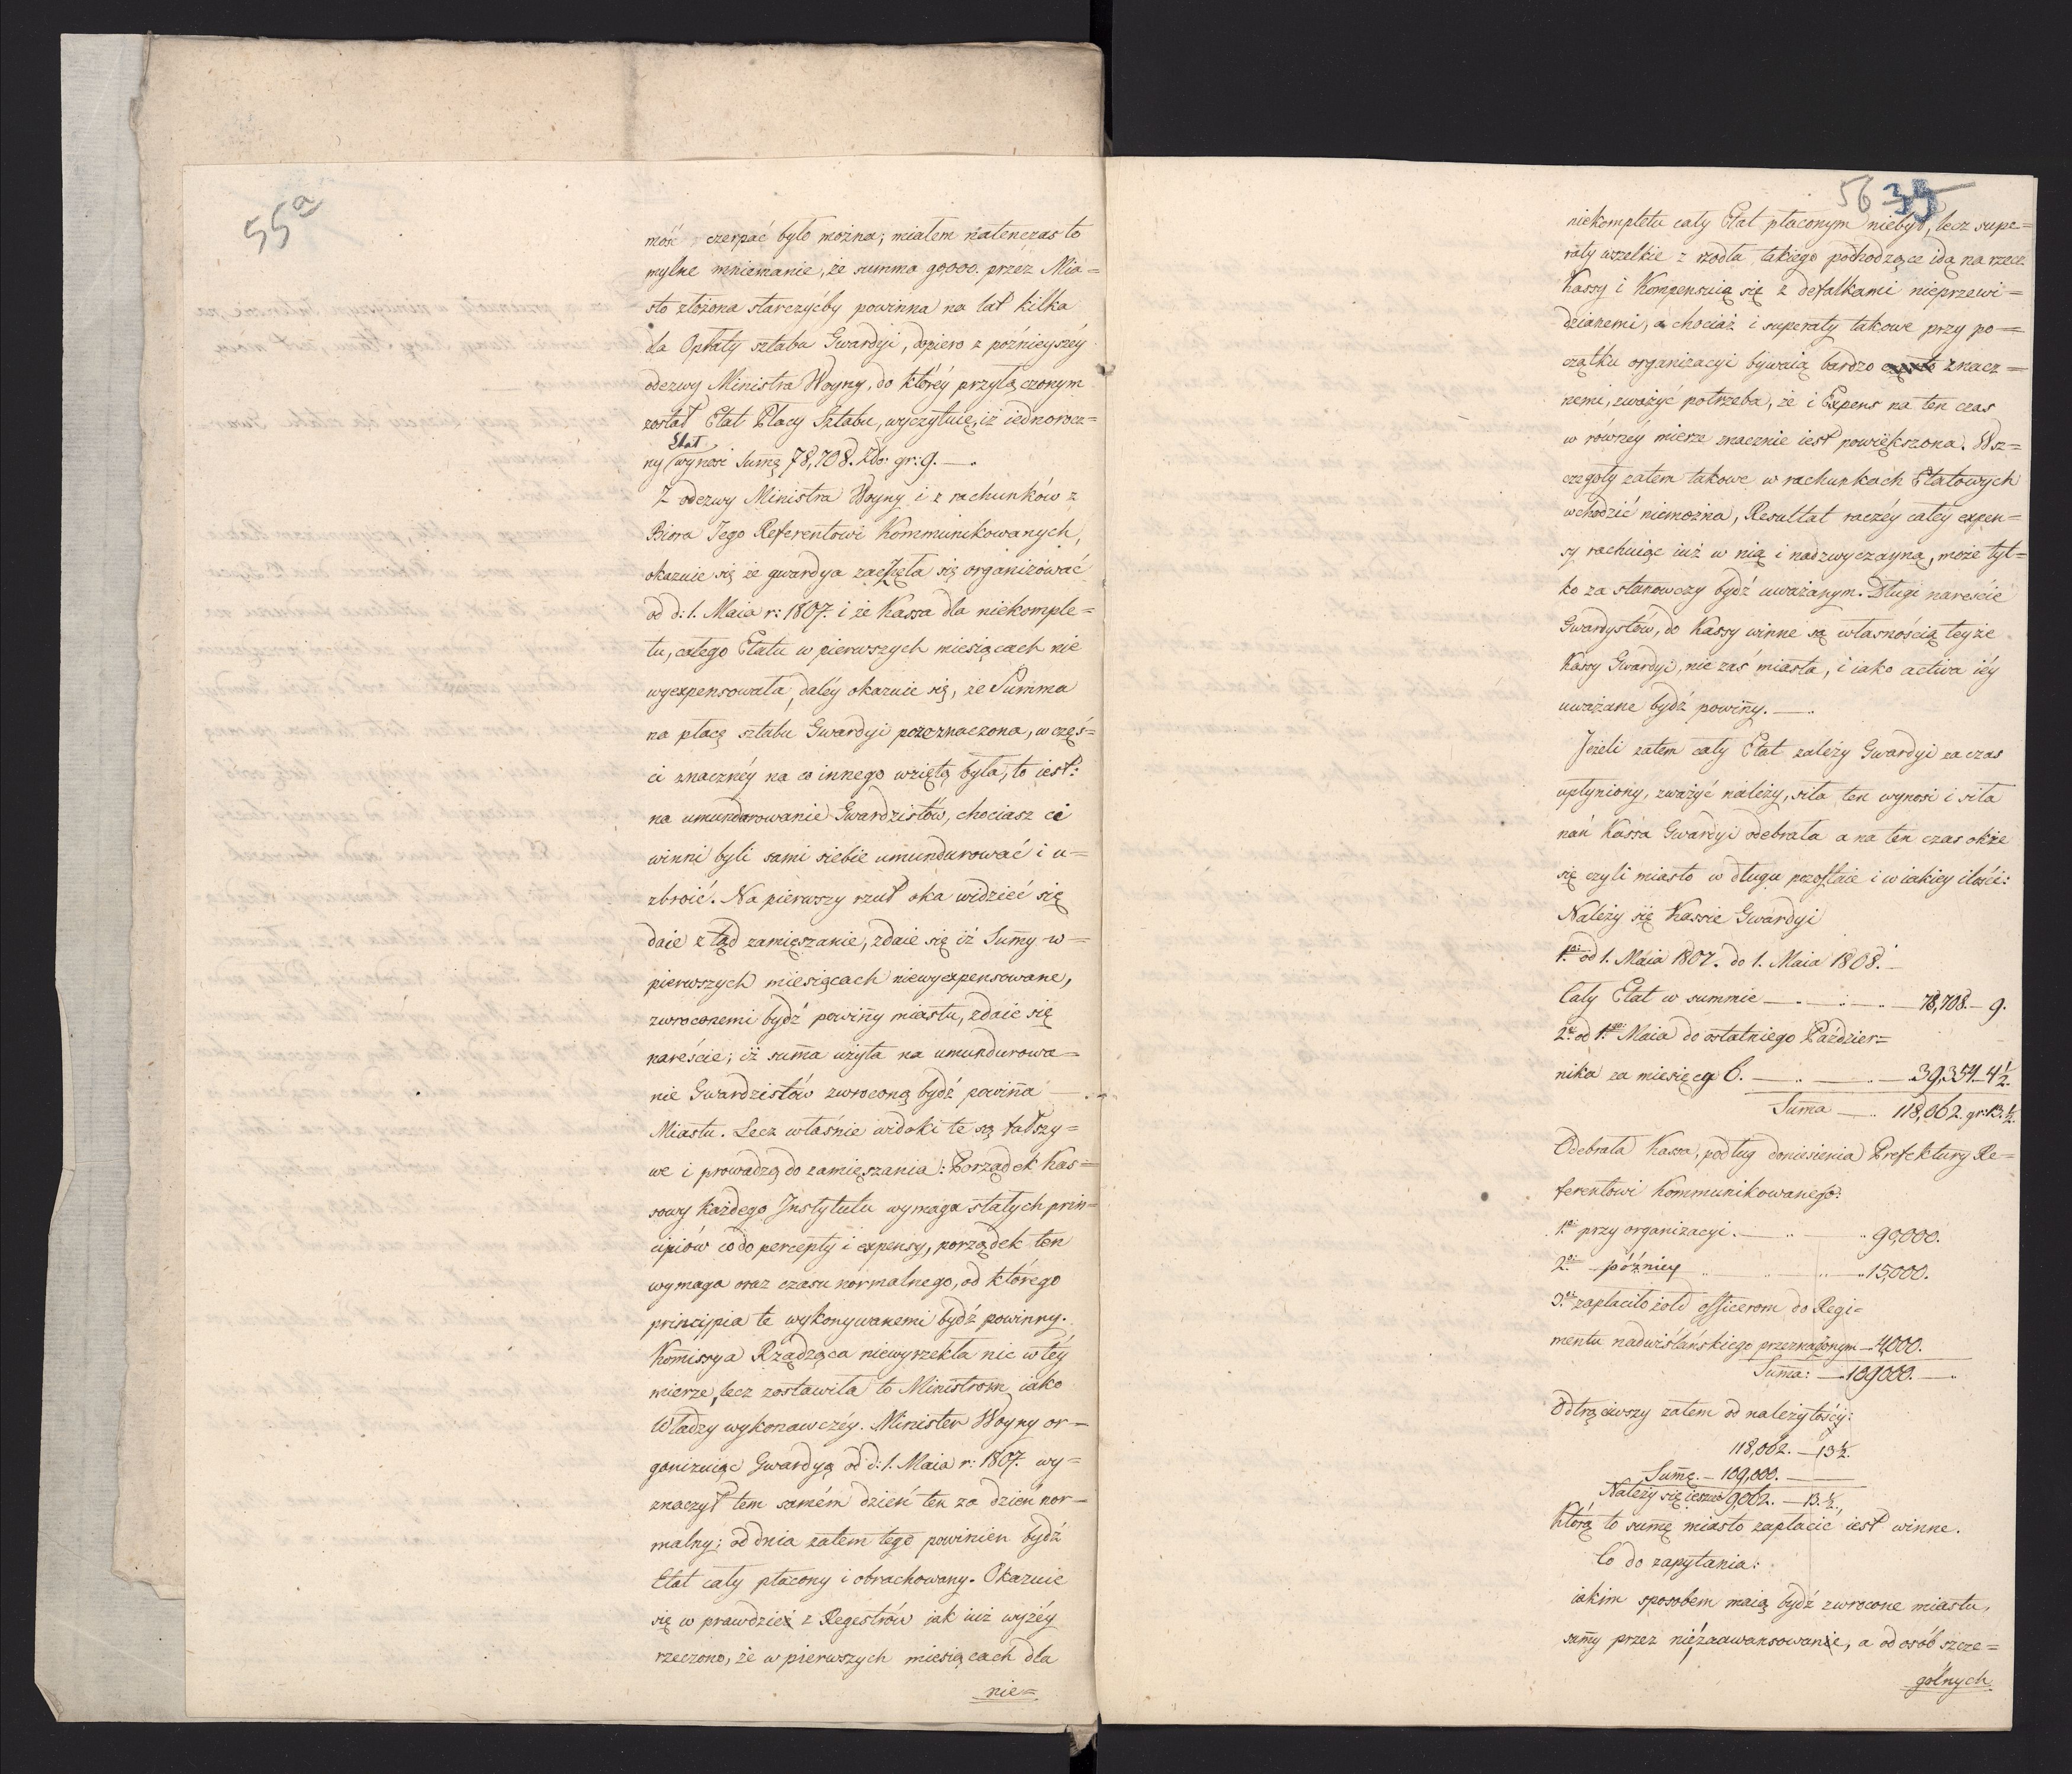 55a
mość czerpać było można; miałem natenczas to
mylne mniemanie, że summa 90000. przez Mia=
sto złożona starczyćby powinna na lat kilka
da Opłaty sztabu Gwardyi, dopiero z poźnieyszéy
odezwy Ministra Woyny, do któréy przyłączonym
został Etat Płacy Sztabu, wyczytuię, iż iednorocz=
Etat
ny wynosi Sum̄ę 78,708. Zło: gr: 9. —.
Z odezwy Ministra Woyny i z rachunków z
Biora Jego Referentowi Kommunikowanych,
okazuie się że gwardya zaczęła się organizować
od d: 1. Maia r: 1807. i że Kassa dla niekomple=
tu, całego Etatu w pierwszych miesiącach nie
wyexpensowała, daléy okazuie się, że Summa
na płacę sztabu Gwardyi przeznaczona, w częś=
ci znacznéy na co innego wziętą była, to iest:
na umundurowanie Gwardzistów, chociasz ci
winni byli sami siebie umundurować i u=
zbroić. Na pierwszy rzut oka widzieć się
daie z tąd zamięszanie, zdaie się iż Sum̄y w=
pierwszych miesiącach niewyexpensowane,
zwroconemi bydź powin̄y miastu, zdaie się
nareście; iż sum̄a użyta na umundurowa=
nie Gwardzistów zwroconą bydź powin̄a —.
Miastu. Lecz właśnie widoki te są fałszy=
we i prowadzą do zamięszania: Porządek Kas=
sowy każdego Instytutu wymaga stałych prin=
cipiów co do percepty i expensy, porządek ten
wymaga oraz czasu normalnego, od którego
principia te wykonywanemi bydź powinny.
Kom̄issya Rządząca niewyrzekła nic w téy
mierze, lecz zostawiła to Ministrom iako
Władzy wykonawczéy. Minister Woyny or=
ganizuiąc Gwardyą od d: 1. Maia r: 1807. wy=
znaczył tem samém dzień ten za dzień nor=
malny; od dnia zatem tego powinien bydź
Etat cały płacony i obrachowany. Okazuie
się w prawdzie z Regestrów iak iuż wyżéy
rzeczono, że w pierwszych miesiącach dla
nie=
56 35
niekompletu cały Etat płaconym niebył, lecz supe=
raty wszelkie z rzodła takiego pochodzące idą na rzecz
Kassy i Kompensuią się z defalkami nieprzewi=
dzianemi, a chociaż i superaty takowe przy po=
czątku organizacyi bywaią bardzo znacz=
nemi, zważyć potrzeba, że i Expens na ten czas
w równéy mierze znacznie iest powiększona. W sz=
czegoły zatem takowe w rachunkach Etatowych
wchodzić niemożna, Resultat raczéy całéy expen=
sy rachuiąc iuż w nią i nadzwyczayną, może tyl=
ko za stanowczy bydź uważanym. Długi nareście
Gwardystów, do Kassy winne są własnością teyże
Kassy Gwardyi, nie zaś miasta, i iako activa iéy
uważane bydź powin̄y. —.
Jeżeli zatem cały Etat należy Gwardyi za czas
upłyniony, zważyć należy, siła ten wynosi i siła
nań Kassa Gwardyi odebrała a na ten czas okże
się czyli miasto w długu pozostaie i w iakiey ilości:
Należy się Kassie Gwardyi
1mo: od 1. Maia 1807. do 1. Maia 1808. —
Cały Etat w summie — 78,708. — 9.
2do od 1go Maia do ostatniego Paździer=
nika za miesięcy 6. — 39,354 — 4 1/2.
Sum̄a — 118,062. gr: 13. 1/2
Odebrała Kassa, podług doniesienia Prefektury Re=
ferentowi Kommunikowanego:
1mo przy organizacyi. — 90,000.
2do późniey — 15,000.
3tio zapłaciło żołd officerom do Regi=
mentu nadwiślańskiego przeznaczonym — 4,000.
Sum̄a: — 109,000. —.
Odtrąciwszy zatem od należytości:
118,062. — 13 1/2.
Sum̄ę. — 109,000. —
Należy się ieszcze 9,062. — 13. 1/2.,
Którą to sum̄ę miasto zapłacić iest winne.
Co do zapytania:
iakim sposobem maią bydź zwrocone miastu,
sum̄y przez nie zaawansowane, a od osób szcze=
gólnych